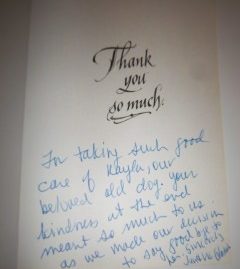 Thank
you
so much.
For taking such good
care of Kayla, our
beloved old dog. Your
kindness at the end
meant so much to us
as we made our decision
to say goodbye to